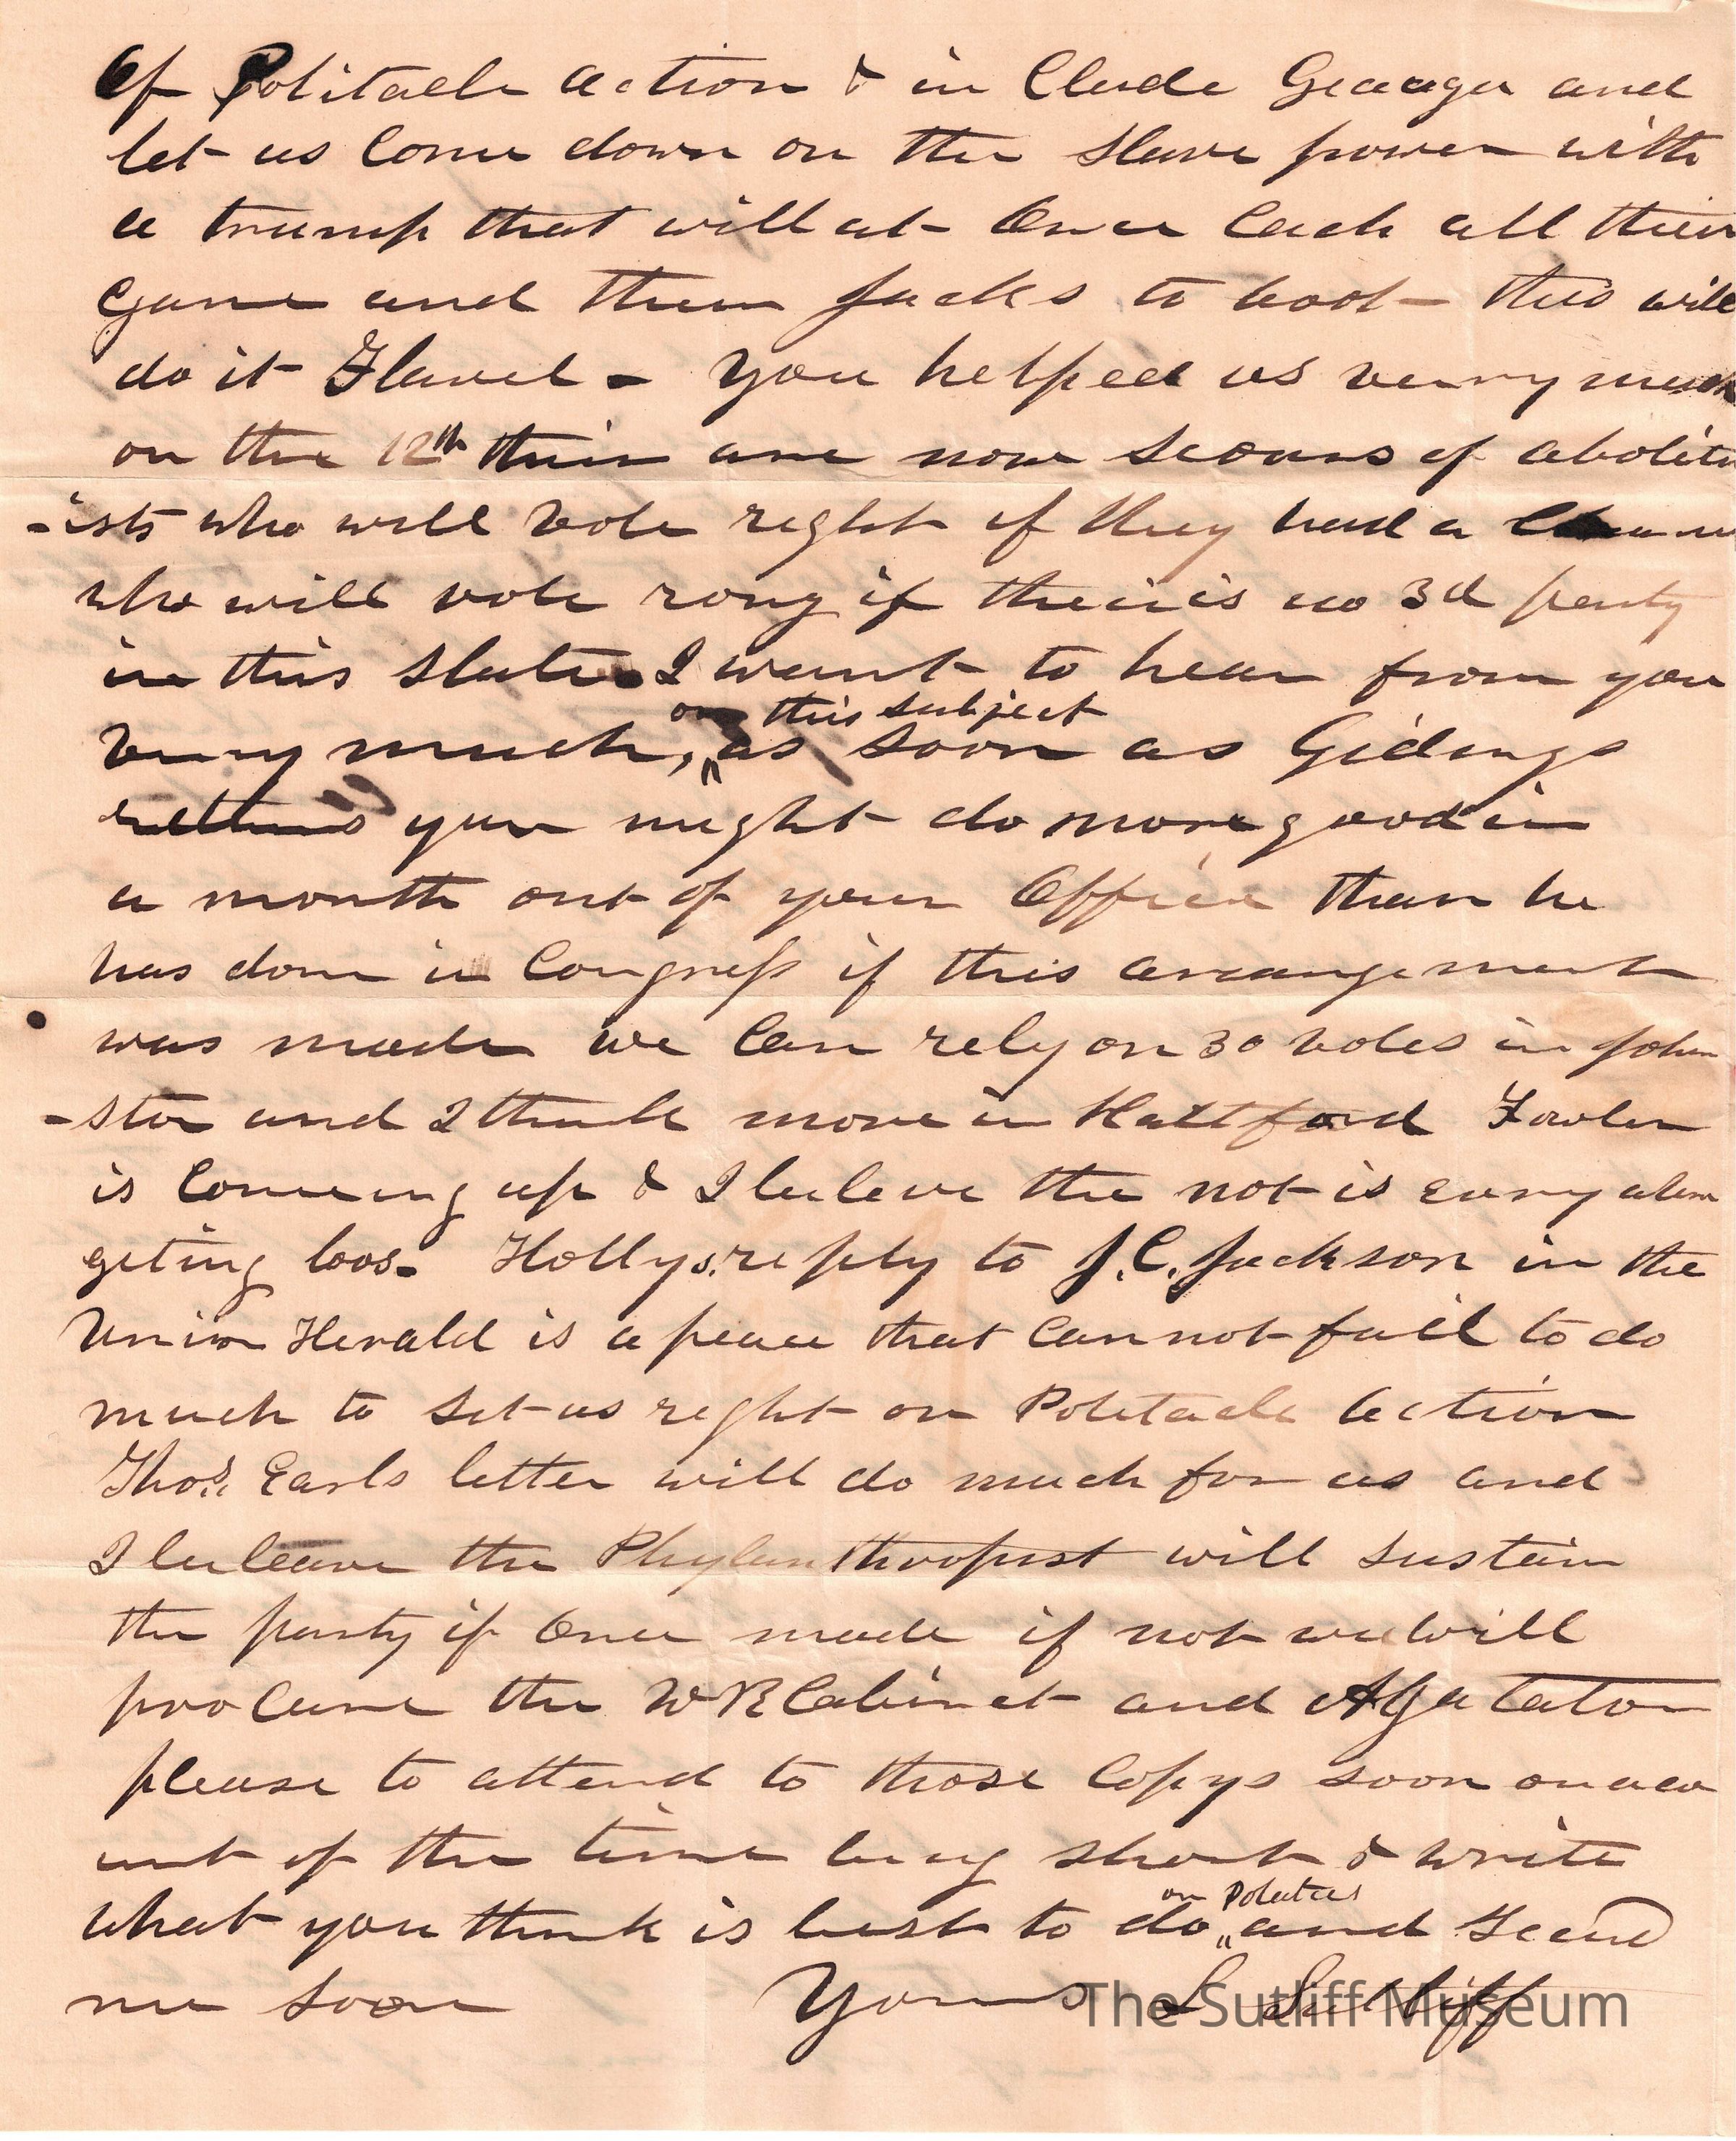 Of Politacle action & in Clude Geauga and
let us Come down on the Slave power with
a trump that will at Once Cach all their
game and their Jacks to boot this will
do it Flavel - You helped us verry much
on the 12th their are now Scours of abolition
-ists who will vote right if they had a
who will vote rong if their is no 3d party
in this State I want to hear from you
on this subject
verry much, as soon as Gidings
returns you might do more good in
a month out of your Office than he
has done in Congress if this arrangement
was made we Can rely on 30 votes in John
-ston and I think more in Hartford Fowler
is Comeing up & I beleve the not is every whare
geting loos. Hollys reply to J.C. Jackson in the
Union Herald is a peace that Cannot fail to do
much to Set us right on Politacle action
Thos. Earls letter will do much for us and
I beleave the Phylanthropist will Sustain
the party if Once made if not we will
proCure the W R Cabinet and Agatator
please to attend to those Copys soon on aco
unt of the time being short & write
on Polatics
what you think is best to do and Send
me soon Yours L Sutliff
The Sutliff Museum